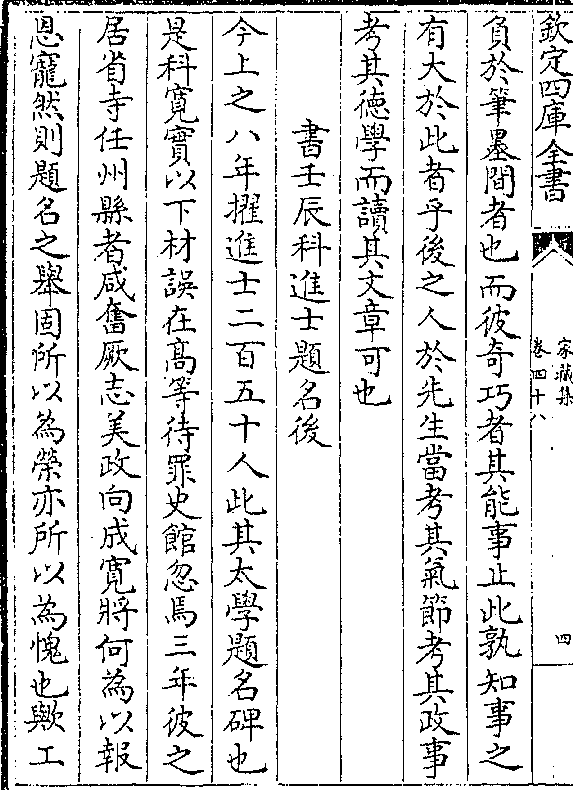 欽定四庫全書
家藏集
卷四十八
四
負於筆墨間者也而彼奇巧者其能事止此孰知事之
有大於此者乎後之人於先生當考其氣節考其政事
考其德學而讀其文章可也
書壬辰科進士題名後
今上之八年擢進士二百五十人此其太學題名碑也
是科寬實以下材誤在高等待罪史館忽焉三年彼之
居省寺任州縣者咸奮厥志美政向成寬將何為以報
恩寵然則題名之舉固所以為榮亦所以為愧也歟工